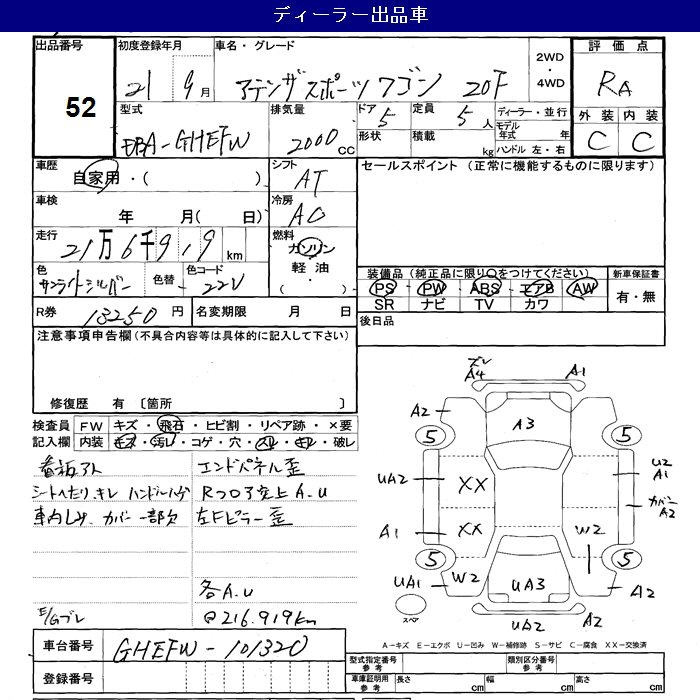 ディーラー出品車
出品番号 初度登録年月 車名・グレード 評価点
52 21年 9月 アテンザスポーツワゴン 20F 2WD・4WD RA
型式 排気量 ドア 定員 ディーラー・並行 外装 内装
DBA-GHEFW 2000cc 5 5人 モデル年式 年 C C
形状 積載 kg ハンドル 左・右
車歴 自家用・( ) シフト AT セールスポイント (正常に機能するものに限ります)
車検 年 月( 日) 冷房 AC
走行 21万6千919km 燃料 ガソリン
軽油
・( )
色 サンライトシルバー 色替 色コード 22V
装備品 (純正品に限り○をつけてください) 新車保証書
PS・PW・ABS・エアB・AW 有・無
SR ナビ TV カワ
R券 13250円 名変期限 月 日 後日品
注意事項申告欄(不具合内容等は具体的に記入して下さい)
修復歴 有 〔箇所
検査員記入欄 FW キズ・飛石・ヒビ割・リペア跡・×要
内装 キズ・汚レ・コゲ・穴・スレ・キレ・破レ
看板アト エンドパネル歪
シートへたり、キレ ハンドルハゲ Rフロア突上A.U
車内しみ、カバー一部欠 左Fピラー歪
各A.U
E/Gブレ @216.919km
ズレ
A4 A1
A2 A3
5 5
UA2 XX U2 A1
カバー A2
A1 XX W2
5 5
UA1 W2 UA3 A2
スペア UA2 A2
A-キズ E-エクボ U-凹み W-補修跡 S-サビ C-腐食 XX-交換済
車台番号 GHEFW-101320
登録番号
型式指定番号 参考 類別区分番号 参考
車庫証明用 参考 長さ cm 幅 cm 高さ cm